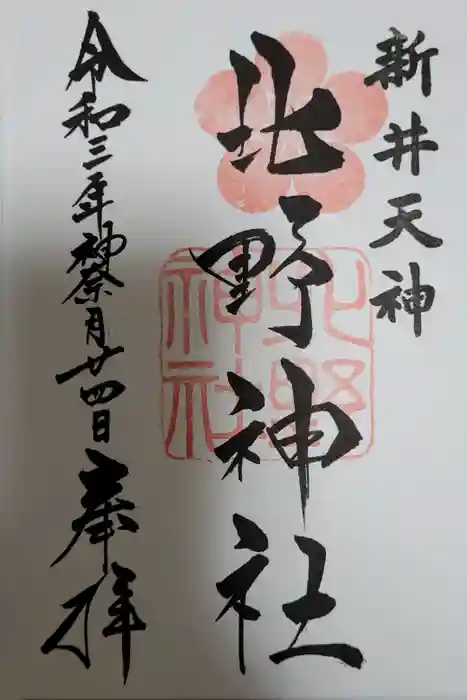 新井天神
北野神社
北野
神社
令和三年神奈月廿四日奉拝